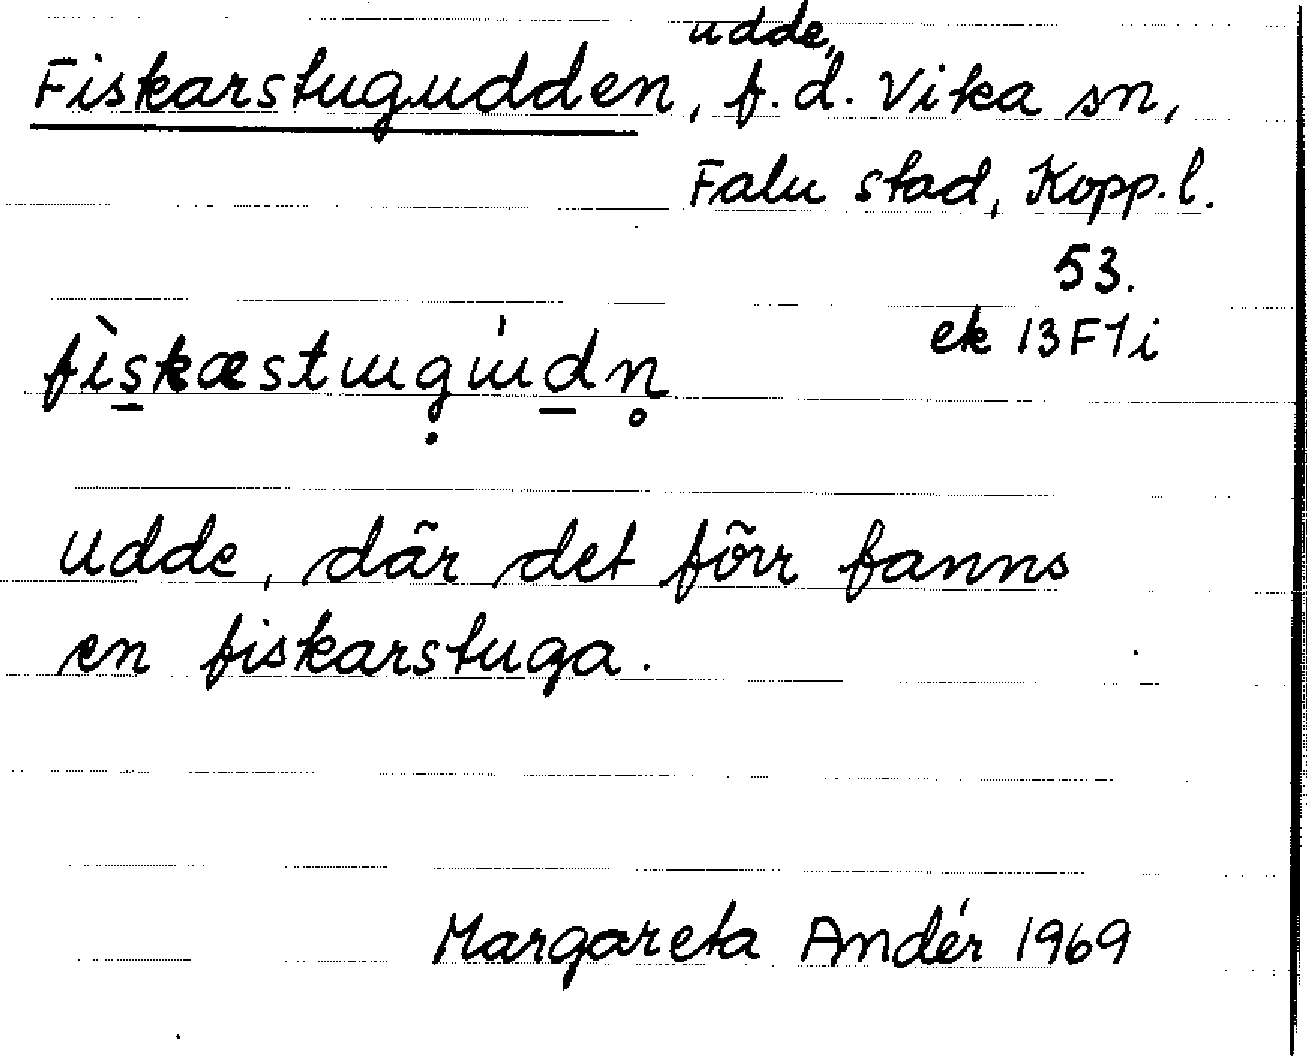 udde,
Fiskarstugudden, f.d. Vika sn,
Falu stad, Kopp.l.
53.
ek 13F1i
fìs̲kæstɯg̣ɯ́d̲n̥
udde, där det förr fanns
en fiskarstuga.
Margareta Andér 1969